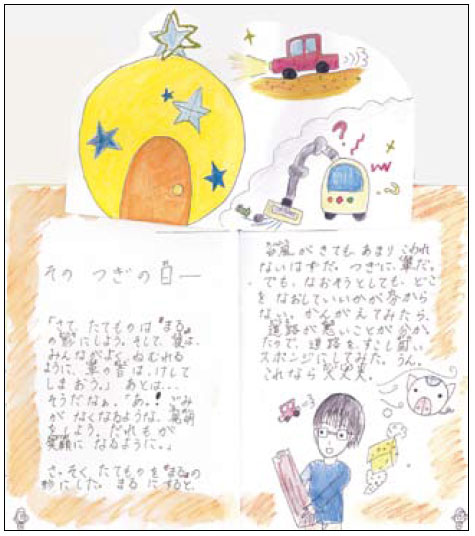 そのつぎの日―
「さて、たてものは"まる"
の形にしよう。そして、夜は、
みんながよく、ねむれる
ように、車の音は、けして
しまおう。」あとは...
そうだなぁ。「あ。!ごみ
が なくなるような、発明
をしよう。だれもが
笑顔に なるように。」
さっそく、たてものを"まる"の
形にした。まるにすると、
台風がきても、あまり こわれ
ないはずだ。つぎに、車だ。
でも、なおそうとしても、どこ
を なおしていいかが分から
ない。かんがえてみたら、
道路が 悪いことが 分か
たので、道路を、すこし
スポンジにしてみた。うん。
これなら 大丈夫。